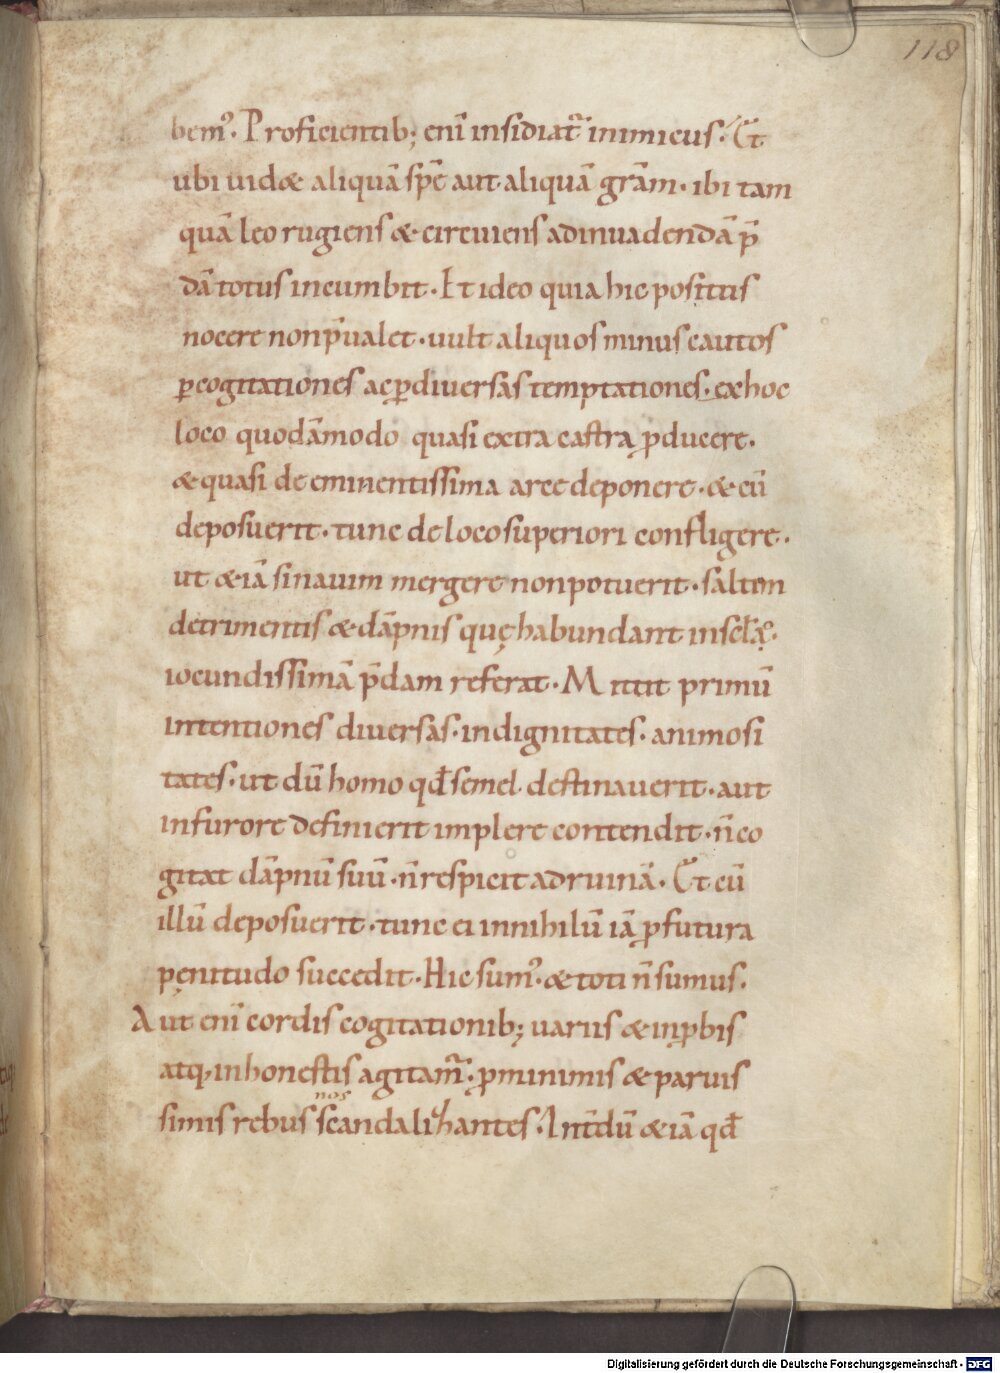 118
bem᷒. Proficientib; eni̅ insidiat᷑ inimicus. Et
ubi uidæ aliquā spē aut aliquā grām. ibi tam
quā leo rugiens & circuiens ad inuadendā p̄
dā totus incumbit. Et ideo quia hic positis
nocere non p̄ualet. uult aliquos minus cautos
ꝑ cogitationes ac ꝑ diuersas temptationes. ex hoc
loco quodāmodo quasi extra castra ꝓducere.
& quasi de eminentissima arce deponere. & cū
deposuerit. tunc de loco superiori confligere.
ut &iā si nauim mergere non potuerit. saltem
detrimentis & dāpnis quę habundant in sc̄lo.
iocundissimā p̄dam referat. Mittit primū
intentiones diuersas. indignitates. animosi
tates. ut dū homo qđ semel destinauerit. aut
in furore definierit implere contendit. n̄ co
gitat dāpnū suū. n̄ respicit ad ruinā. Et cū
illū deposuerit. tunc ei in nihilū iā ꝓfutura
pęnitudo succedit. Hic sum᷒. & toti n̄ sumus.
Aut eni̅ cordis cogitationib; uariis & inꝓbis
atq; inhonestis agitam᷑. ꝓ minimis & paruis
simis rebus nos scandalizantes. Int̄dū &iā qđ
Digitalisierung gefördert durch die Deutsche Forschungsgemeinschaft - DFG